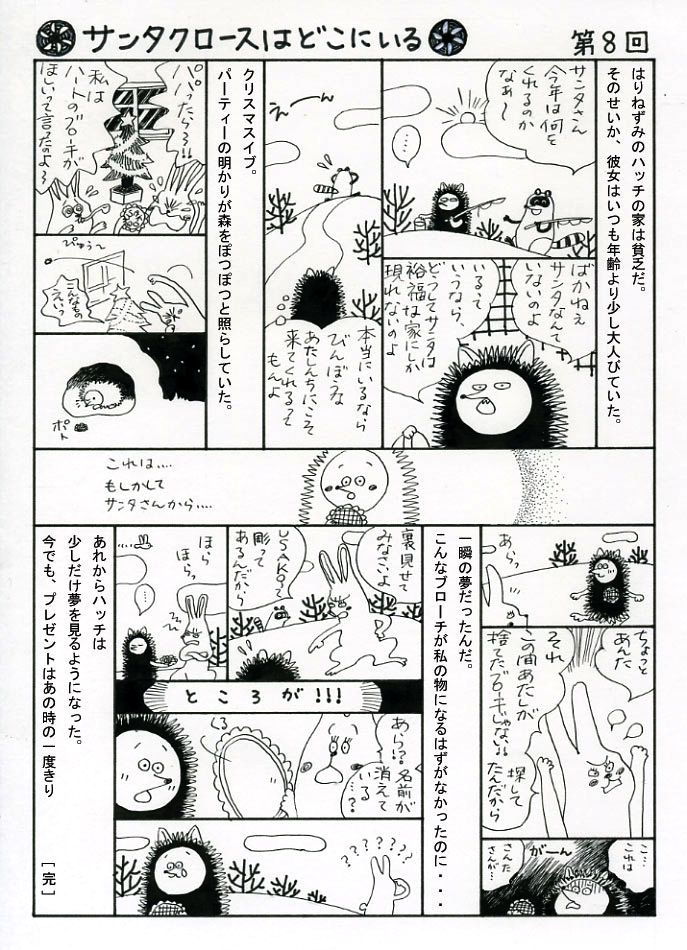 サンタクロースはどこにいる
第8回
はりねずみのハッチの家は貧乏だ。
そのせいか、彼女はいつも年齢より少し大人びていた。
サンタさん
今年は何を
くれるのか
なぁ〜
(‥‥)
ばかねぇ
サンタなんて
いないのよ
いるって
いうなら、
どうしてサンタは
裕福な家にしか
現れないのよ
えーん
本当にいるなら
びんぼうな
あたしんちにこそ
来てくれるって
もんよ
クリスマスイブ。
パーティーの明かりが森をぽつぽつと照らしていた。
パパったらぁ!!
私は
ハートのブローチが
ほしいって言ったのよ〜
ぴゅう〜
こんなもの
えいっ
ポト
これは‥‥
もしかして
サンタさんから‥‥
あらっ
ちょっと
あんた
それ
この間あたしが
捨てたブローチじゃない!!
探して
たんだから
こ…
これは
さんた
さんが…
がーん
一瞬の夢だったんだ。
こんなブローチが私の物になるはずがなかったのに・・・
裏見せて
みなさいよ
USAKOって
彫って
あるんだから
ほら
ほらっ
ところが!!!
あら?名前が
消えて
いる
…?
くる
??????
あれからハッチは
少しだけ夢を見るようになった。
今でも、プレゼントはあの時の一度きり
[完]